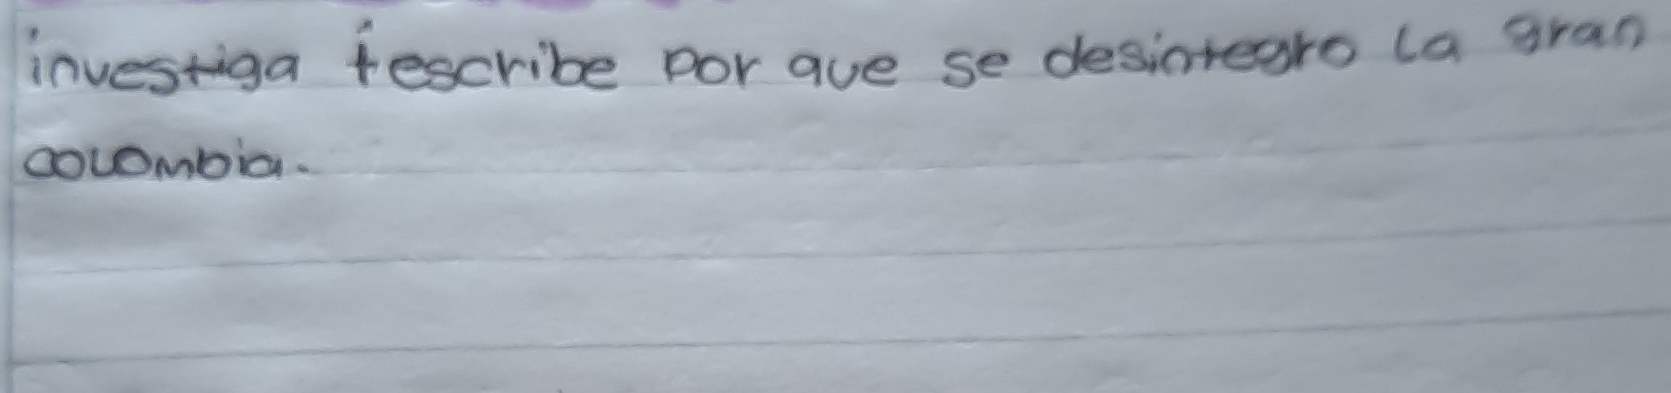 investiga y escribe por que se desintegro la gran
colombia.